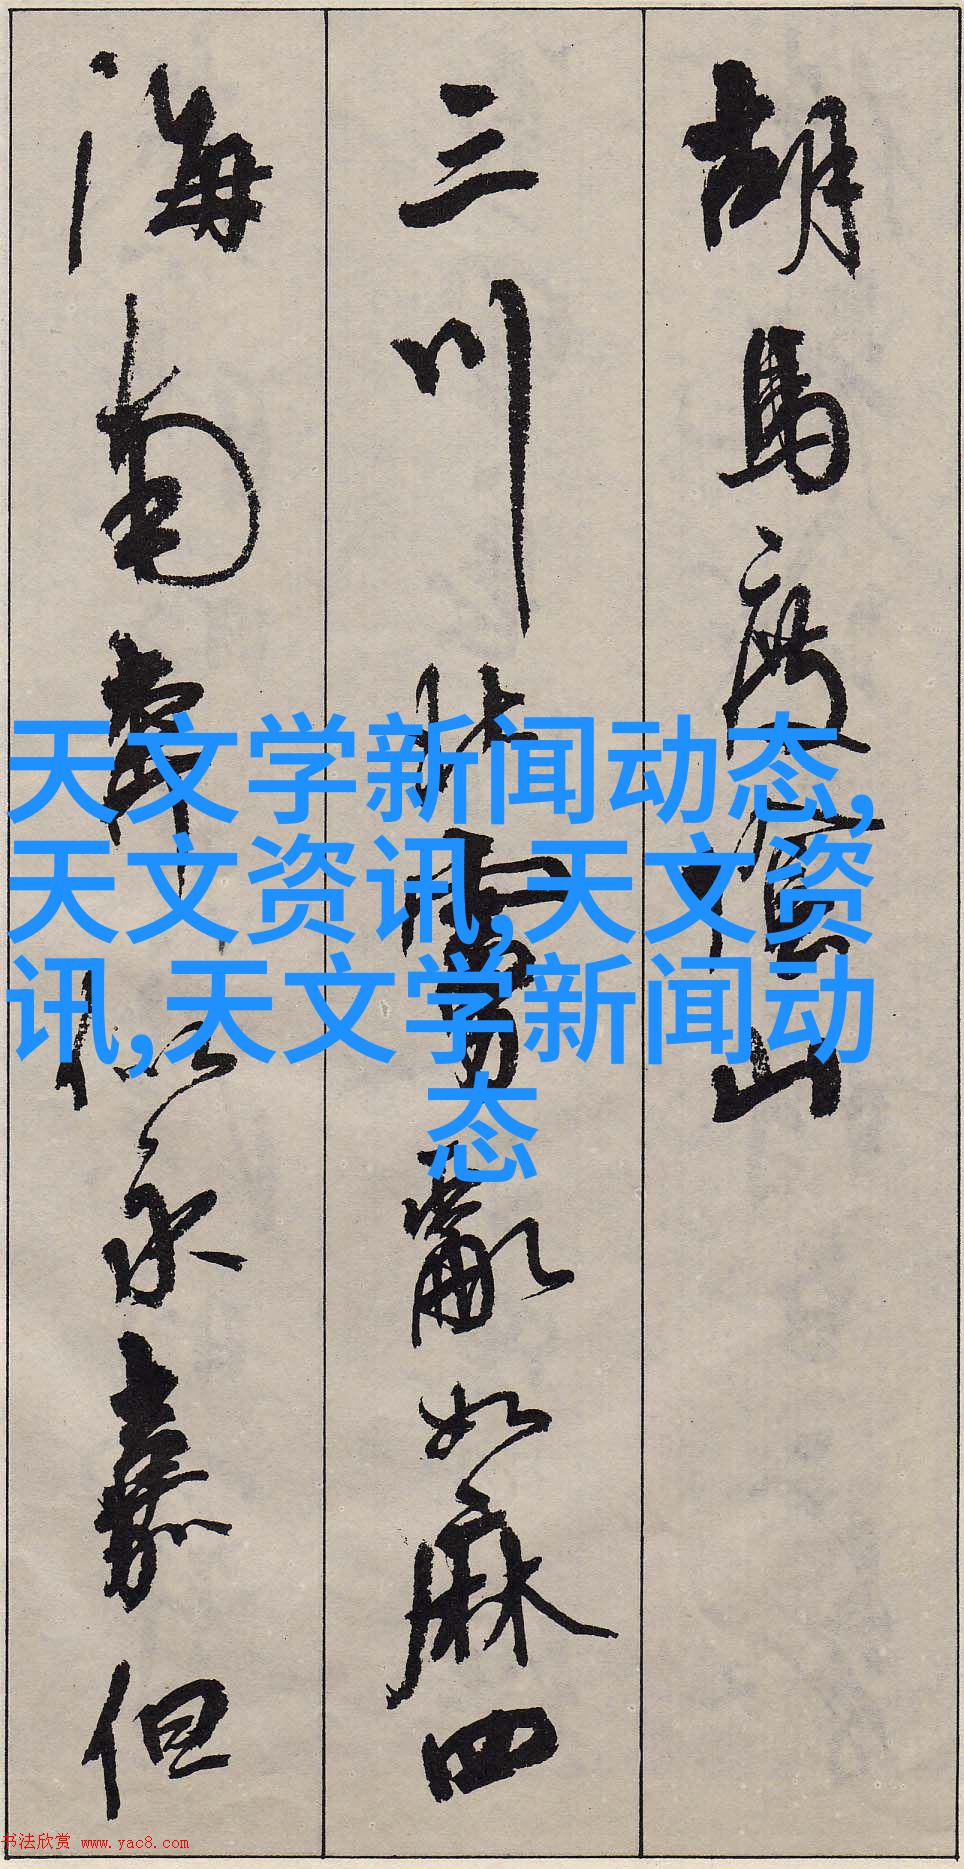 胡馬度陰山
三川北虜亂如麻四
海南奔似永嘉但
天文学新闻动态,
天文资讯,天文资
讯,天文学新闻动
态
书法欣赏 www.yac8.com